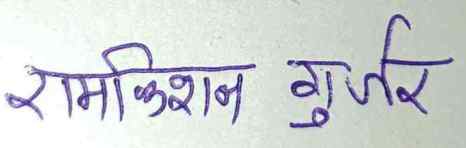 रामकिशन गुर्जर